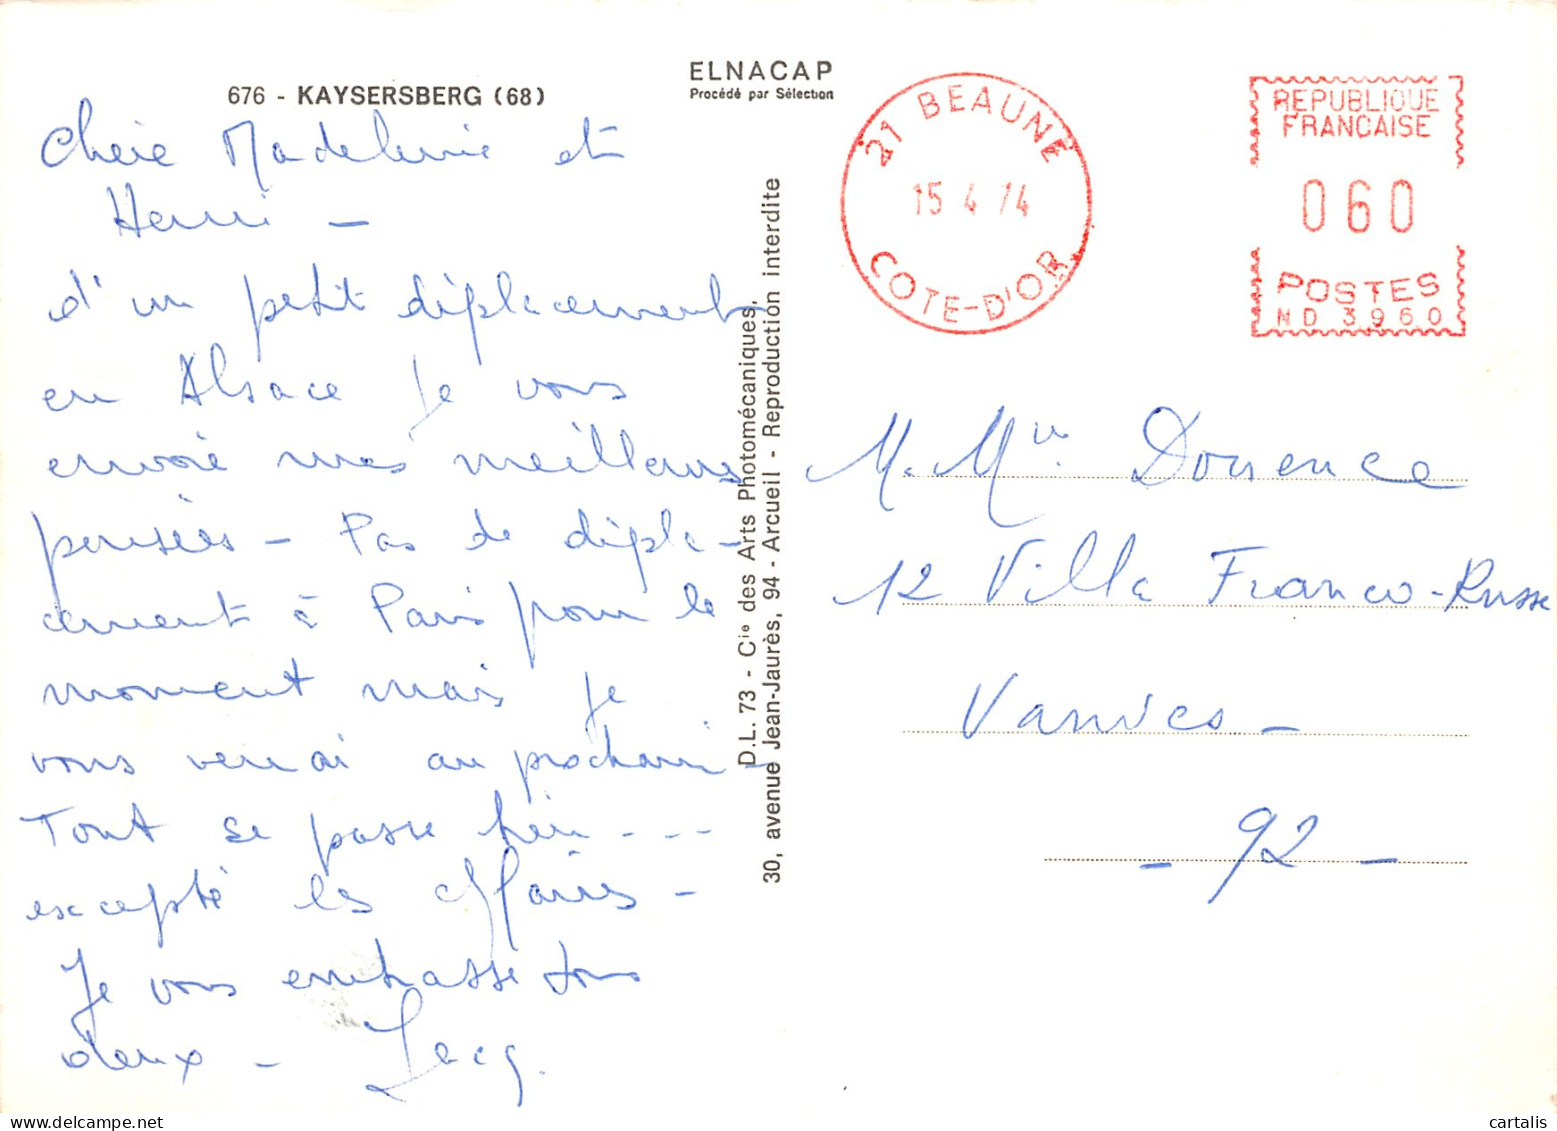 676 - KAYSERSBERG (68)
ELNACAP
Procédé par Sélection
Chère Madeleine et
Henri -
d'un petit déplacement
en Alsace je vous
envoie mes meilleures
pensées - Pas de dépla-
cement à Paris pour le
moment mais je
vous verrai au prochain -
Tout se passe bien - - -
excepté les affaires -
Je vous embrasse tous
deux -
D.L. 73 - Cie des Arts Photomécaniques,
30, avenue Jean-Jaurès, 94 - Arcueil - Reproduction interdite
21 BEAUNE
15 4 74
COTE-D'OR
REPUBLIQUE
FRANCAISE
060
POSTES
ND 3960
M. Me
12 Villa Franco-Russe
Vanves -
- 92 -
cartalis